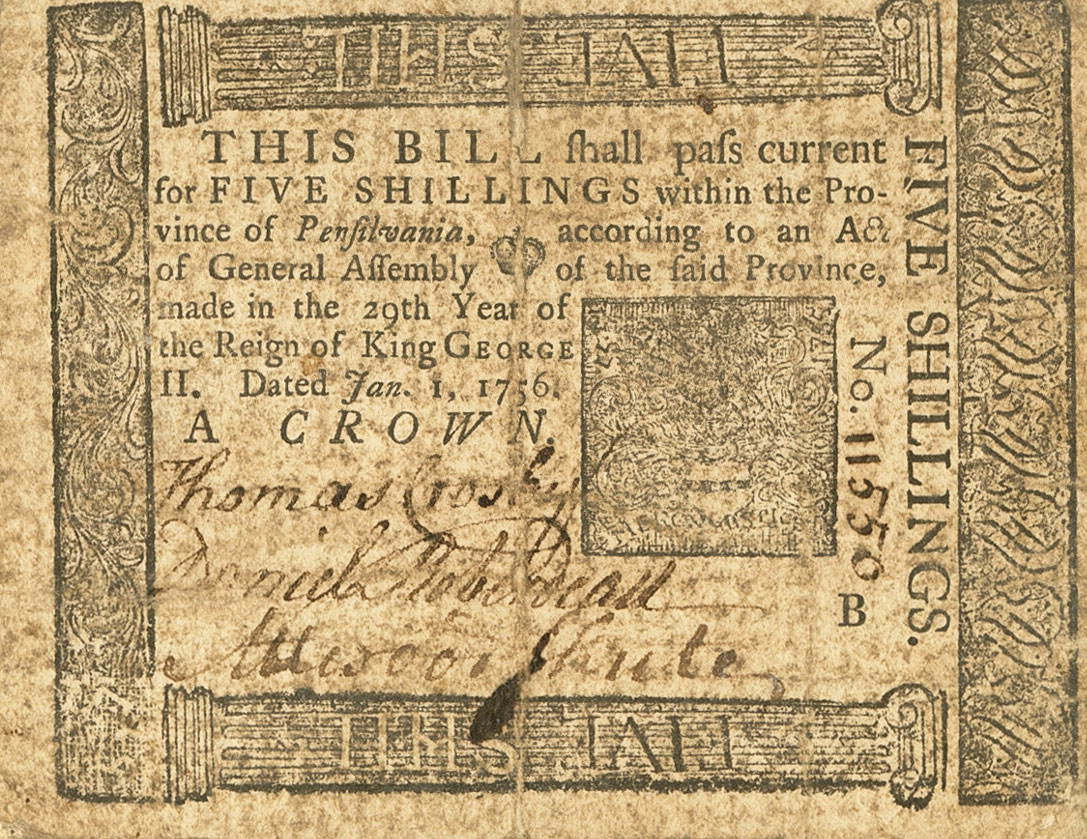 THIS BILL ſhall paſs current
for FIVE SHILLINGS within the Pro-
vince of Penſilvania, according to an Act
of General Aſſembly of the ſaid Province,
made in the 29th Year of
the Reign of King GEORGE
II. Dated Jan. 1, 1756.
A CROWN.
Thomas Crosby
Daniel Roberdeau
Attwood Shute
FIVE SHILLINGS.
No. 11550
B